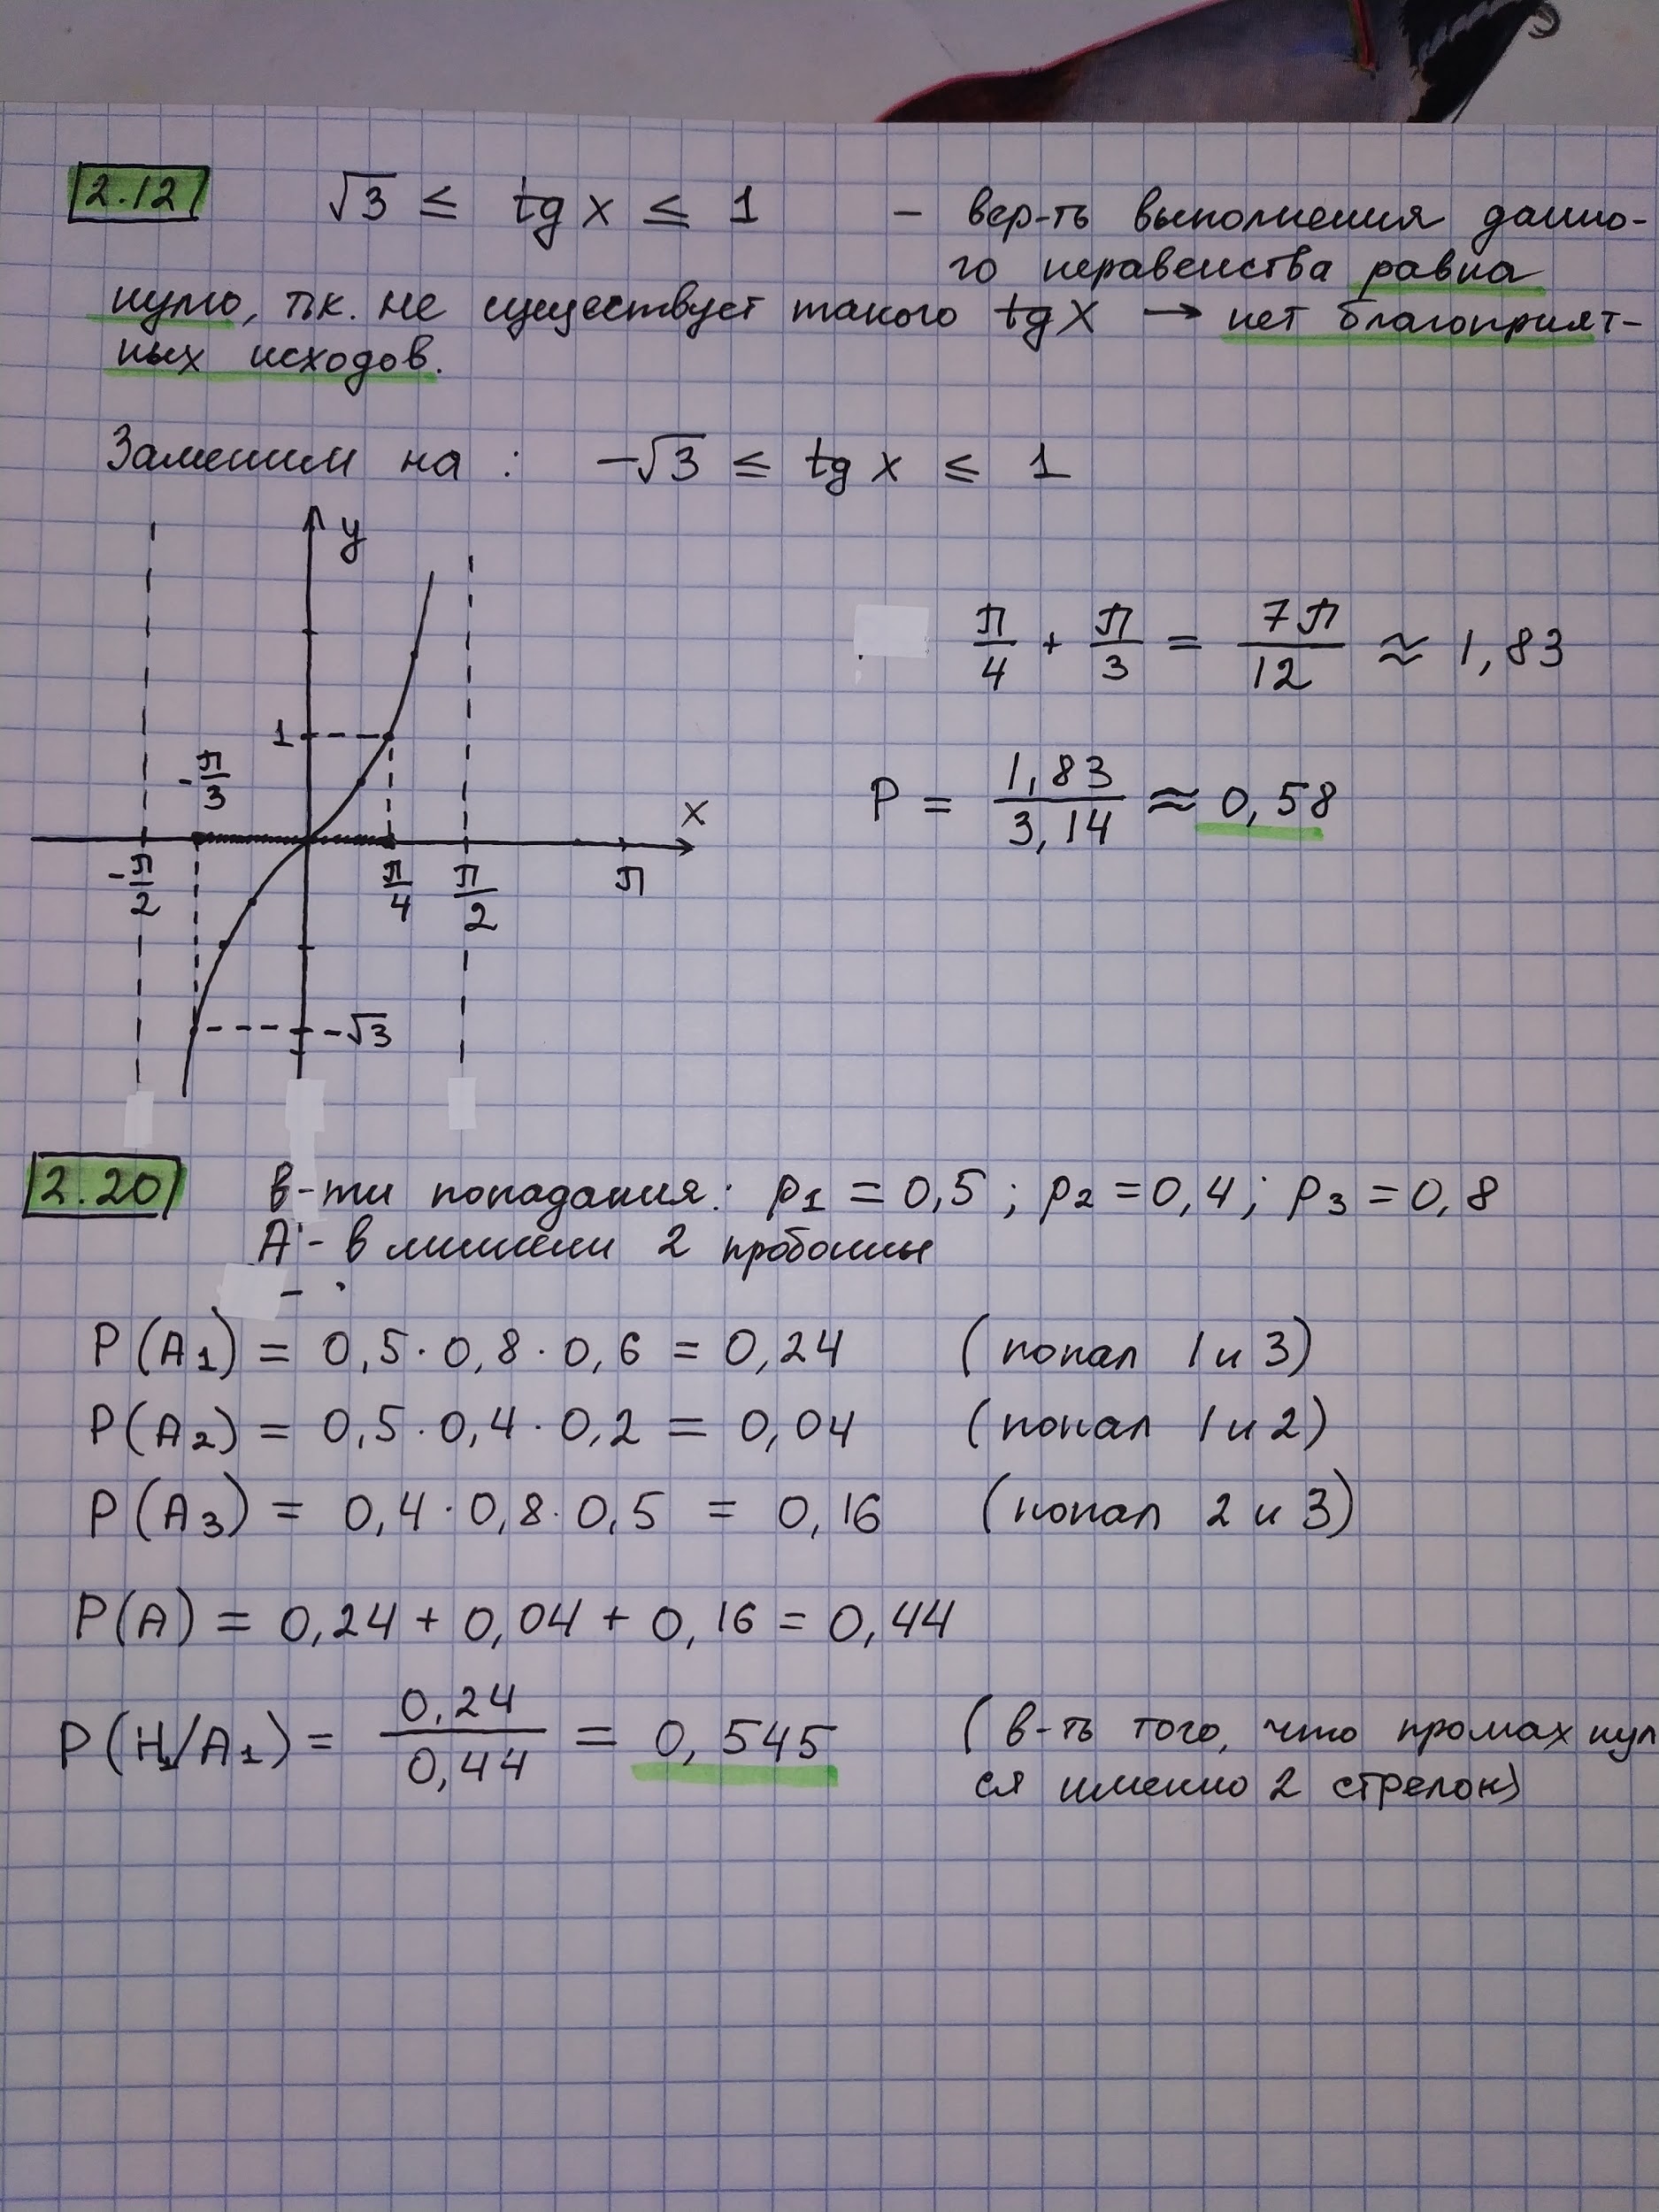 2.12 √3 ≤ tg x ≤ 1 – вер-ть выполнения данно-
го неравенства равна
нулю, т.к. не существует такого tg x → нет благоприят-
ных исходов.
Заменим на : -√3 ≤ tg x ≤ 1
y
π/4 + π/3 = 7π/12 ≈ 1,83
1
-π/3
P = 1,83/3,14 ≈ 0,58
x
-π/2 π/4 π/2 π
-√3
2.20 в-ти попадания: p1 = 0,5 ; p2 = 0,4 ; p3 = 0,8
A - в мишени 2 пробоины
P(A1) = 0,5 · 0,8 · 0,6 = 0,24 (попал 1 и 3)
P(A2) = 0,5 · 0,4 · 0,2 = 0,04 (попал 1 и 2)
P(A3) = 0,4 · 0,8 · 0,5 = 0,16 (попал 2 и 3)
P(A) = 0,24 + 0,04 + 0,16 = 0,44
P(H1/A1) = 0,24/0,44 = 0,545 (в-ть того, что промахнул
ся именно 2 стрелок)